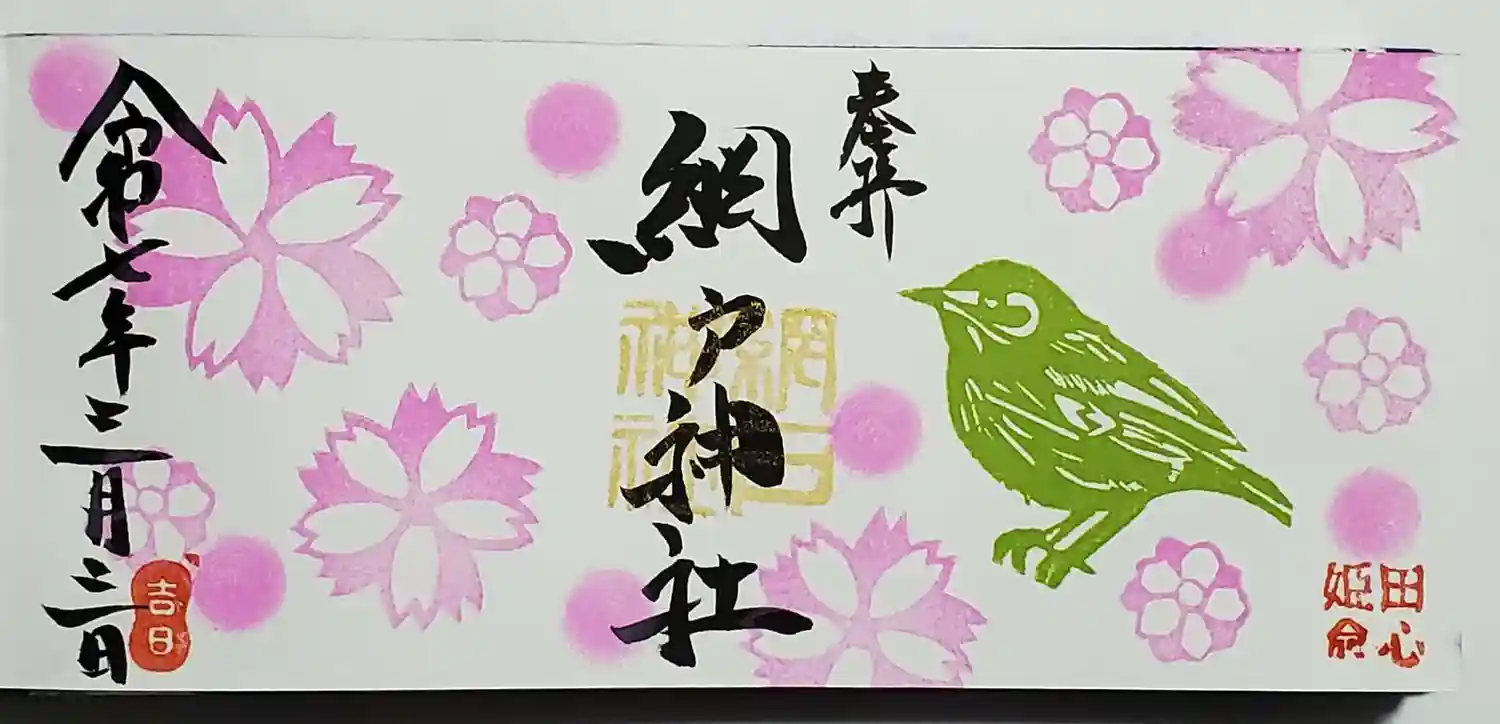 田心
姫命
奉拝
網戸神社
網戸
神社
令和七年三月三日
吉日